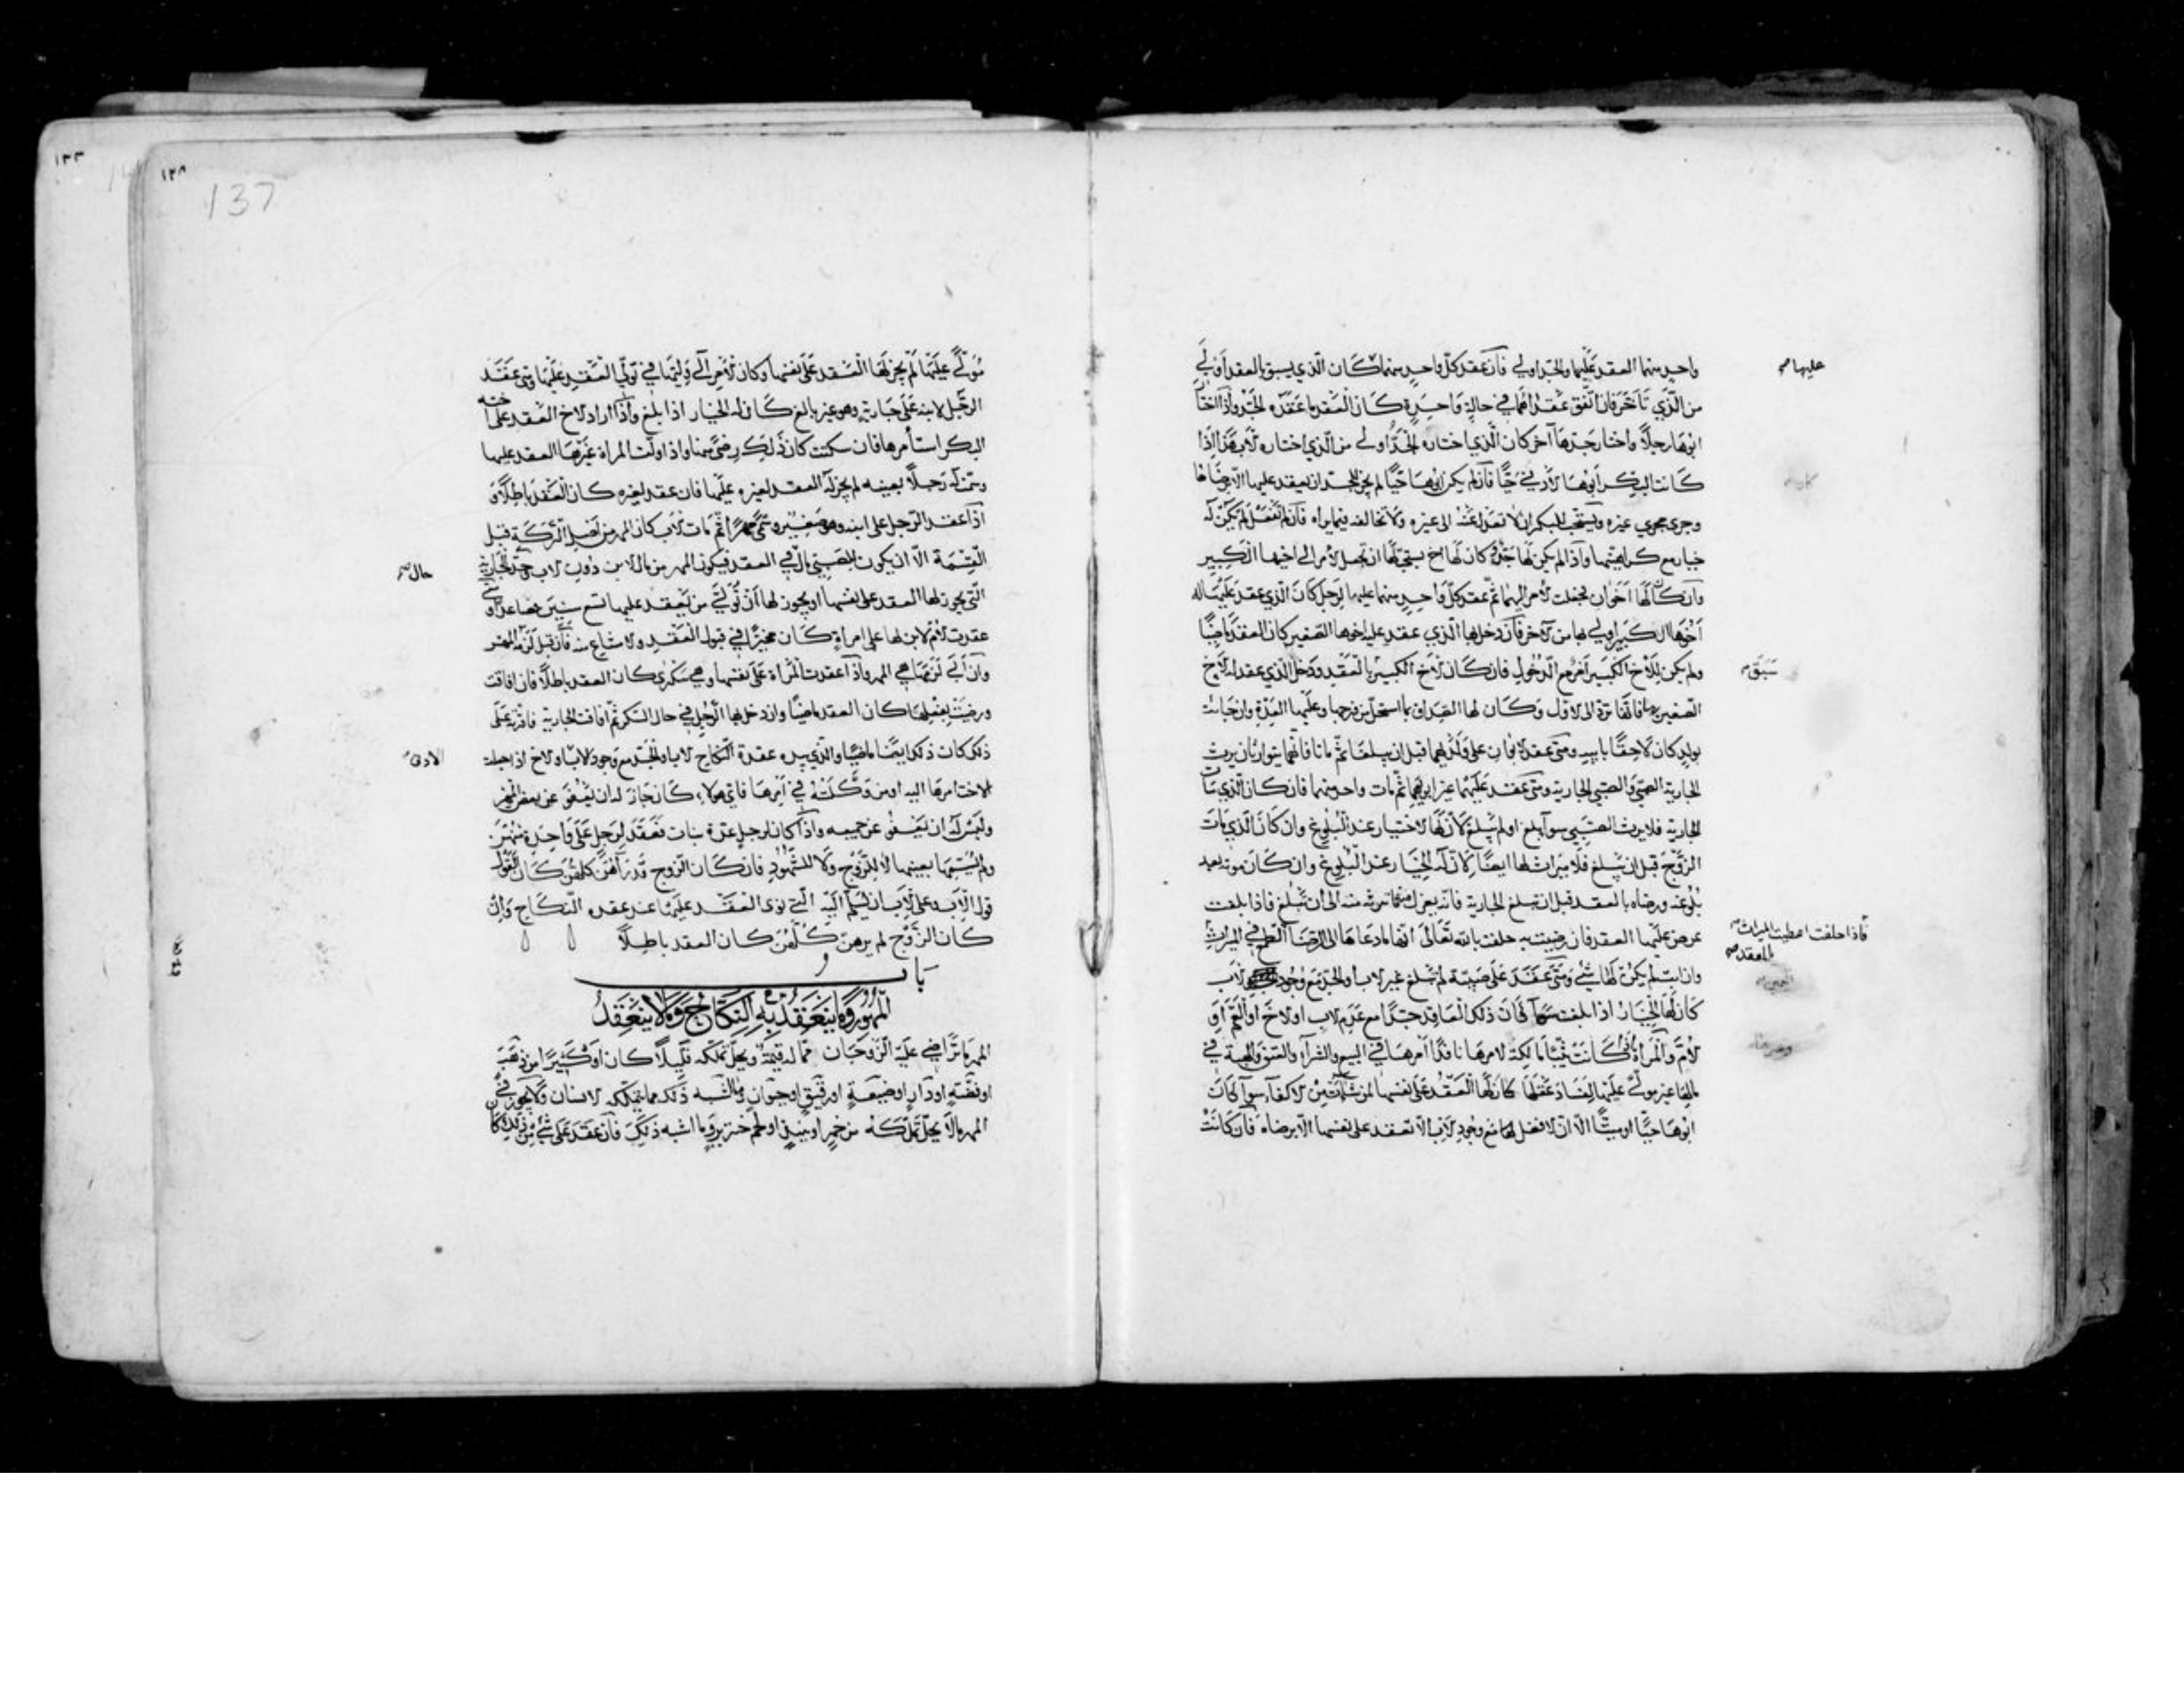 واحد منهما العقد عليها والجد اولي فان عقد كل واحد منهما كان الذي يسبق بالعقد اولي
من الذي تأخر فان اتفق عقداهما في حالة واحدة كان العقد ما عقده الجد واذا اختار
ابوها رجلا واختار جدها آخر كان الذي اختاره الجد اولي من الذي اختاره الاب هذا اذا
كانت البكر ابوها الادني حيا فان لم يكن ابوها حيا لم يجز للجد ان يعقد عليها الا برضاها
وجري مجري غيره ويستحب للبكر ان لا تعدل عنه الى غيره ولا تخالفه فيما يراه فان لم تفعل لم يكن له
خيار مع كراهيتها واذا لم يكن لها جد وكان لها اخ يستحب لها ان تجعل الأمر الى اخيها الكبير
وان كان لها اخوان فجعلت الأمر اليهما ثم عقد كل واحد منهما عليها لرجل كان الذي عقد عليها له
اخوها الكبير اولي بها من الآخر فان دخل بها الذي عقد عليه اخوها الصغير كان العقد ماضيا
ولم يكن للأخ الكبير امر مع الدخول فان كان الأخ الكبير بالعقد ودخل الذي عقد له الأخ
الصغير بها فانها ترد الى الاول وكان لها الصداق بما استحل من فرجها وعليها العدة وان جاءت
بولد كان لاحقا بابيه ومتى عقد الابوان على ولديهما قبل ان يبلغا ثم ماتا فانهما يتوارثان يرث
الجارية الصبي والصبي الجارية ومتى عقد عليهما غير ابويهما ثم مات واحد منهما فان كان الذي مات
الجارية فلا يرث الصبي سوآ بلغ او لم يبلغ لأن لها الاختيار عند البلوغ وان كان الذي مات
الزوج قبل ان يبلغ فلا ميراث لها ايضا لأن له الخيار عند البلوغ وان كان موته بعد
بلوغه ورضاه بالعقد قبل ان تبلغ الجارية فانه يعزل ما ترثه منه الى ان تبلغ فاذا بلغت
عرض عليها العقد فان رضيت به حلفت بالله تعالى انها ما دعاها الى الرضا الطمع في الميراث
وان ابت لم يكن لها شئ ومتى عقد على صبية لم تبلغ غير الاب او الجد مع وجود الاب
كان لها الخيار اذا بلغت سوآ كان ذلك العاقد جدا مع عدم الاب او الاخ او العم او
الأم والمرأة اذا كانت ثيبا مالكة لامرها نافذا امرها في البيع والشرآء والعتق والهبة في
مالها غير مولي عليها لفساد عقلها كان لها العقد على نفسها لمن شاءت من الاكفآء سوآ كان
ابوها حيا او ميتا الا ان الافضل لها مع وجود الاب الا تعقد على نفسها الا برضاه فان كانت
عليها صح
سبق صح
فاذا حلفت اعطيت الميراث
بالعقد صح
١٣٣
١٣٨
137
مولي عليها لم يجز لها العقد على نفسها وكان الأمر الى وليها في تولي العقد عليها ومتى عقد
الرجل لابنه على جارية وهو غير بالغ كان له الخيار اذا بلغ واذا اراد الاخ العقد على اخته
البكر استأمرها فان سكتت كان ذلك رضى منها واذا ولت المرأة غيرها العقد عليها
وسمت له رجلا بعينه لم يجز له العقد لغيره عليها فان عقد لغيره كان العقد باطلا و
اذا عقد الرجل على ابنه وهو صغير وسمى مهرا ثم مات الاب كان المهر من اصل التركة قبل
القسمة الا ان يكون للصبي مال في العقد فيكون المهر من مال الابن دون الاب وحد الجارية
التي يجوز لها العقد على نفسها او يجوز لها ان تولي من يعقد عليها تسع سنين فصاعدا ومتى
عقدت الأم لابن لها على امرأة كان مخيرا في قبول العقد والامتناع منه فان قبل لزمه المهر
وان ابي لزمها هي المهر واذا عقدت المرأة على نفسها وهي سكرى كان العقد باطلا فان افاقت
ورضيت بفعلها كان العقد ماضيا وان دخل بها الرجل في حال السكر ثم افاقت الجارية فاقرته على
ذلك كان ذلك ايضا ماضيا والذي بيده عقدة النكاح الاب او الجد مع وجود الاب او الاخ اذا جعلت
الاخت امرها اليه او من وكلته في امرها فاي هولاء كان جاز له ان يعفو عن بعض المهر
وليس له ان يعفو عن جميعه واذا كان لرجل عدة بنات فعقد لرجل على واحدة منهن
ولم يسمها بعينها لا للزوج ولا للشهود فان كان الزوج قد رآهن كلهن كان القول
قول الاب وعلى الاب ان يسلم اليه التي نوى العقد عليها عند عقده النكاح وان
كان الزوج لم يرهن كلهن كان العقد باطلا
باب
المهور وما ينعقد به النكاح وما لا ينعقد
المهر ما تراضي عليه الزوجان مما له قيمة ويحل تملكه قليلا كان او كثيرا من ذهب
او فضة او دار او ضيعة او رقيق او حيوان وما اشبه ذلك مما يتملكه الانسان ولا يجوز في
المهر ما لا يحل تملكه من خمر او نبيذ او لحم خنزير وما اشبه ذلك فان عقد على شئ من ذلك كان
حال صح
الادنى